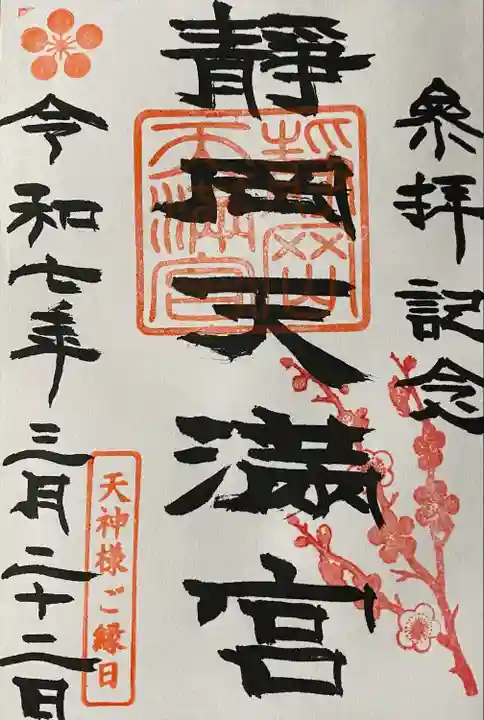 參拝記念
靜岡天満宮
静岡天満宮
令和七年三月二十二日
天神様ご縁日